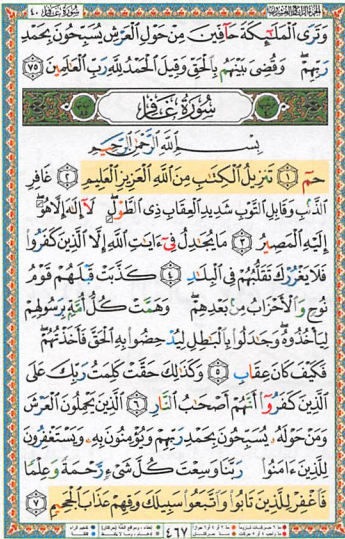 سُورَةُ غَافِرٍ ٤٠
وَتَرَى الْمَلَائِكَةَ حَافِّينَ مِنْ حَوْلِ الْعَرْشِ يُسَبِّحُونَ بِحَمْدِ
رَبِّهِمْ ۖ وَقُضِيَ بَيْنَهُم بِالْحَقِّ وَقِيلَ الْحَمْدُ لِلَّهِ رَبِّ الْعَالَمِينَ ٧٥
سُورَةُ غَافِرٍ
بِسْمِ اللَّهِ الرَّحْمَٰنِ الرَّحِيمِ
حمٓ ١ تَنزِيلُ الْكِتَابِ مِنَ اللَّهِ الْعَزِيزِ الْعَلِيمِ ٢ غَافِرِ
الذَّنبِ وَقَابِلِ التَّوْبِ شَدِيدِ الْعِقَابِ ذِي الطَّوْلِ ۖ لَا إِلَٰهَ إِلَّا هُوَ ۖ
إِلَيْهِ الْمَصِيرُ ٣ مَا يُجَادِلُ فِي آيَاتِ اللَّهِ إِلَّا الَّذِينَ كَفَرُوا
فَلَا يَغْرُرْكَ تَقَلُّبُهُمْ فِي الْبِلَادِ ٤ كَذَّبَتْ قَبْلَهُمْ قَوْمُ
نُوحٍ وَالْأَحْزَابُ مِن بَعْدِهِمْ ۖ وَهَمَّتْ كُلُّ أُمَّةٍ بِرَسُولِهِمْ
لِيَأْخُذُوهُ ۖ وَجَادَلُوا بِالْبَاطِلِ لِيُدْحِضُوا بِهِ الْحَقَّ فَأَخَذْتُهُمْ ۖ
فَكَيْفَ كَانَ عِقَابِ ٥ وَكَذَٰلِكَ حَقَّتْ كَلِمَتُ رَبِّكَ عَلَى
الَّذِينَ كَفَرُوا أَنَّهُمْ أَصْحَابُ النَّارِ ٦ الَّذِينَ يَحْمِلُونَ الْعَرْشَ
وَمَنْ حَوْلَهُ يُسَبِّحُونَ بِحَمْدِ رَبِّهِمْ وَيُؤْمِنُونَ بِهِ وَيَسْتَغْفِرُونَ
لِلَّذِينَ آمَنُوا رَبَّنَا وَسِعْتَ كُلَّ شَيْءٍ رَّحْمَةً وَعِلْمًا
فَاغْفِرْ لِلَّذِينَ تَابُوا وَاتَّبَعُوا سَبِيلَكَ وَقِهِمْ عَذَابَ الْجَحِيمِ ٧
٤٦٧